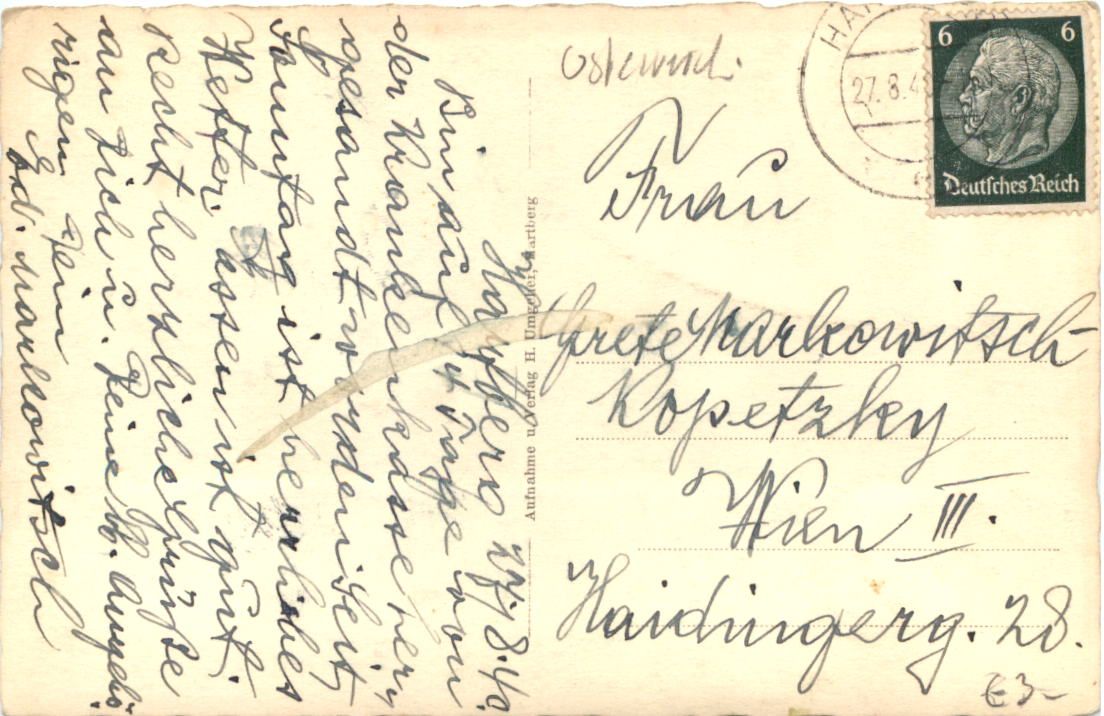 Hartberg 27./8.40.
Bin auf 4 Tage von
der Krankenkasse her,
gesandt worden. Seit
Sonntag ist herrliches
Wetter, essen ist gut.
Recht herzliche Grüße
an Dich u. Deine b. Angehö-
rigen Dein
Ed. Markowitsch
Aufnahme u. Verlag H. Umgeher, Hartberg
27.8.40
6 6
Deutsches Reich
Frau
Grete Markowitsch-
Kopetzky
Wien III.
Haidingerg. 28.
€3-